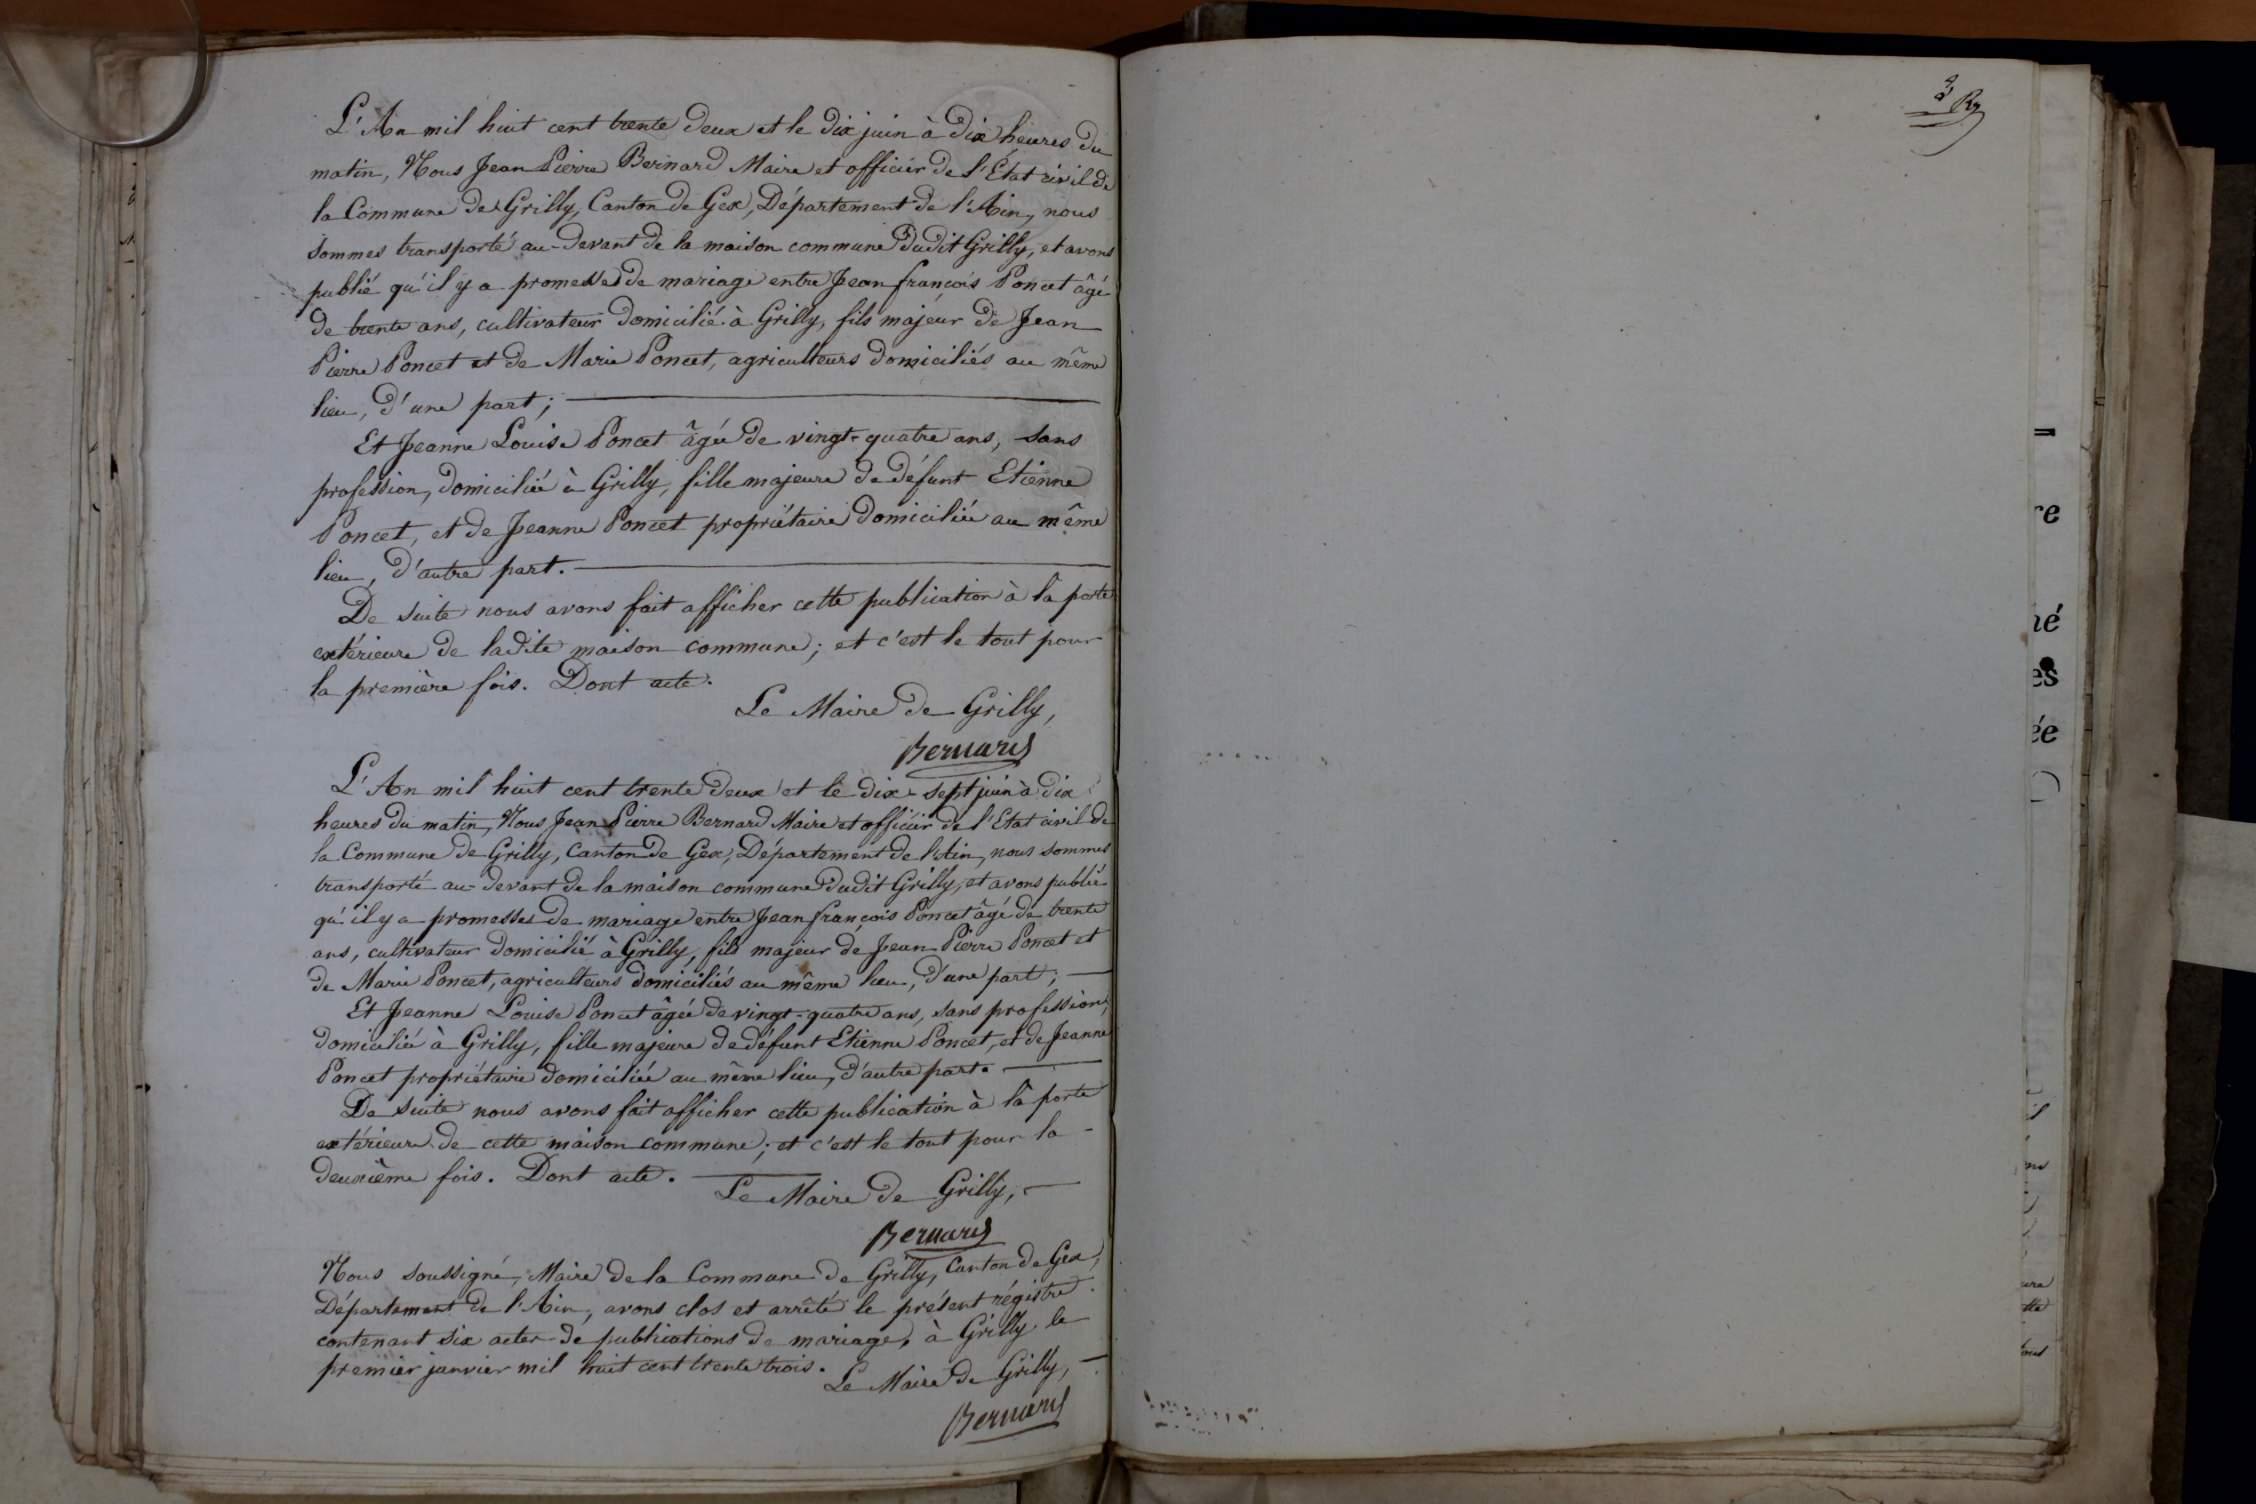 L'An mil huit cent trente deux et le dix juin à dix heures du
matin, Nous Jean Pierre Bernard Maire et officier de l'État civil de
la Commune de Grilly, Canton de Gex, Département de l'Ain, nous
sommes transporté au-devant de la maison commune dudit Grilly, et avons
publié qu'il y a promesses de mariage entre Jean françois Poncet âgé
de trente ans, cultivateur domicilié à Grilly, fils majeur de Jean
Pierre Poncet et de Marie Poncet, agriculteurs domiciliés au même
lieu, d'une part;
Et Jeanne Louise Poncet âgée de vingt-quatre ans, sans
profession, domiciliée à Grilly, fille majeure de défunt Etienne
Poncet, et de Jeanne Poncet propriétaire domiciliée au même
lieu, d'autre part.
De suite nous avons fait afficher cette publication à la porte
extérieure de ladite maison commune; et c'est le tout pour
la première fois. Dont acte.
Le Maire de Grilly,
Bernard
L'An mil huit cent trente deux et le dix-sept juin à dix
heures du matin, Nous Jean Pierre Bernard Maire et officier de l'Etat civil de
la Commune de Grilly, Canton de Gex, Département de l'Ain, nous sommes
transporté au-devant de la maison commune dudit Grilly, et avons publié
qu'il y a promesses de mariage entre Jean françois Poncet âgé de trente
ans, cultivateur domicilié à Grilly, fils majeur de Jean Pierre Poncet et
de Marie Poncet, agriculteurs domiciliés au même lieu, d'une part;
Et Jeanne Louise Poncet âgée de vingt-quatre ans, sans profession,
domiciliée à Grilly, fille majeure de défunt Etienne Poncet, et de Jeanne
Poncet propriétaire domiciliée au même lieu, d'autre part.
De suite nous avons fait afficher cette publication à la porte
extérieure de cette maison commune; et c'est le tout pour la
deuxième fois. Dont acte.
Le Maire de Grilly,
Bernard
Nous soussigné, Maire de la Commune de Grilly, Canton de Gex,
Département de l'Ain, avons clos et arrêté le présent régistre
contenant six actes de publications de mariage, à Grilly le
premier janvier mil huit cent trente trois.
Le Maire de Grilly,
Bernard
re
né
es
ée